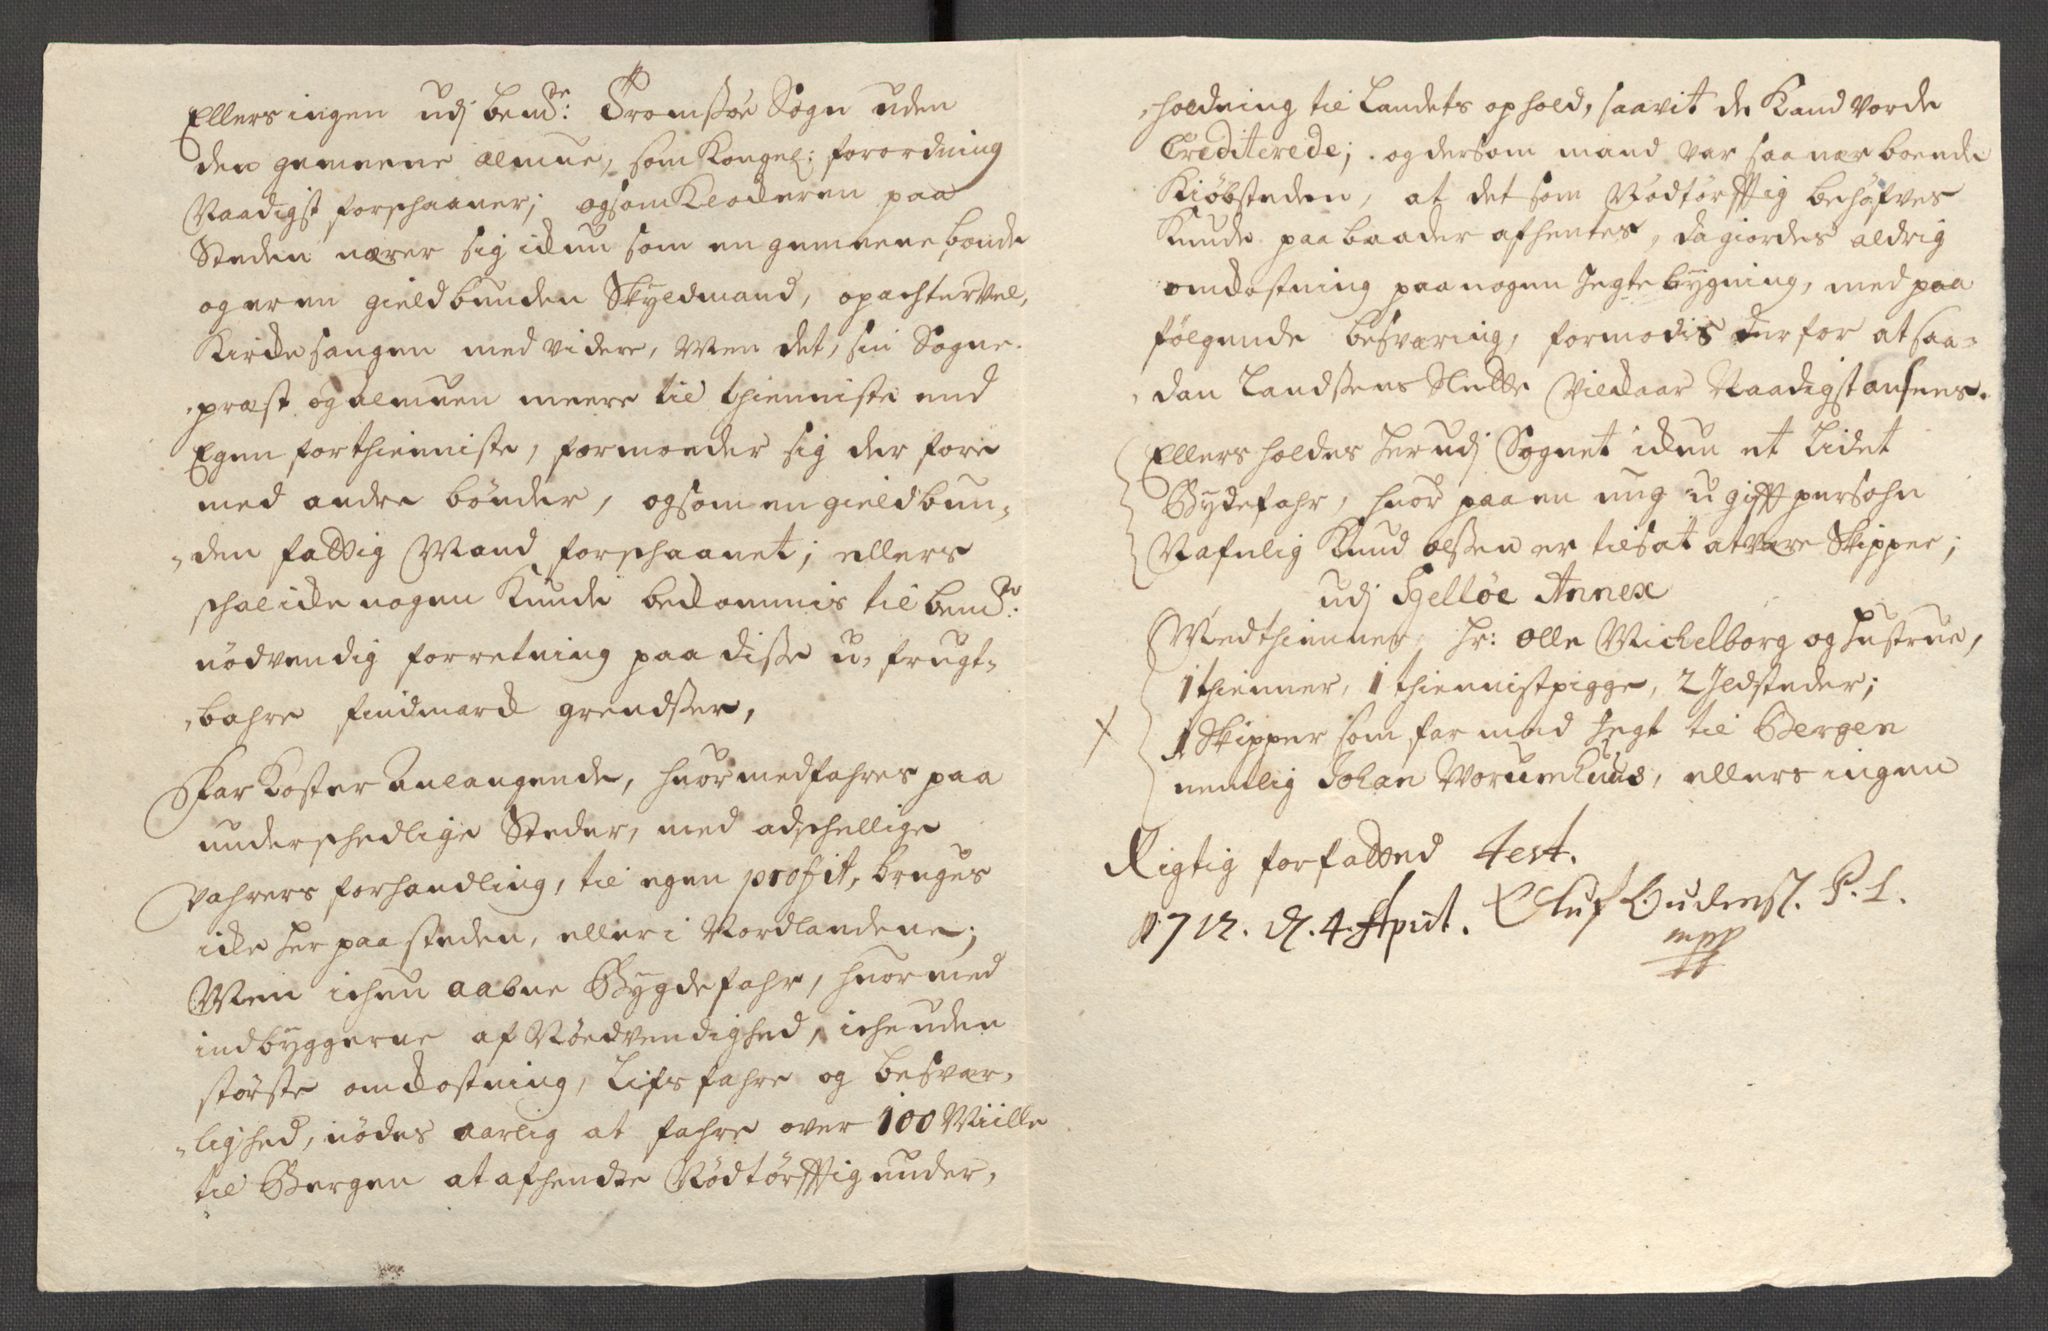 Ellers ingen udj bemte: Tromssøe Sogn uden
den gemeene almue, som Kongel: forordning
Naadigst forschaaner; og som Klocheren paa
Steden nærer sig ickun som en gemeene bonde
og er en gieldbunden Skyldmand, opachter vel,
Kircke sangen med videre, Men det, sin Sogne-
præst og almuen meere til thienniste end
Egen forthienniste, formoeder sig der fore
med andre bønder, og som en gieldbun-
-den fattig Mand forschaanet; ellers
schal icke nogen Kunde bekommis til bemte:
nødvendig forretning paa disse u-frugt-
-bahre findmarck grendsser,
Far Koster Anlangende, huormed fahres paa
underschedlige Steder, med adschellige
vahrers forhandling, til egen profit, bruges
icke her paa steden, eller i Nordlandene;
Men ichun aabne Bygdefahr, huormed
indbyggerne af Nøedvendighed, iche uden
største omkostning, Lifs fahre og besvær-
-lighed, nødes aarlig at fahre over 100 Miille
til Bergen at afhendte Nødtørfftig under-
-holdning til Landets ophold, saavit de Kand vorde
Crediterede; og dersom mand var saa nær boende
Kiøbsteden, at det som Nødtørfftig behøfves
Kunde paa baader afhentes, da giordes aldrig
omkostning paa nogen Jegtebygning, med paa
følgende besværing, formodis derfor at saa-
-dan Landssens Slette Vilckaar Naadigst ansees.
Ellers holdes her udj Sognet ickun et Lidet
Bydefahr, huor paa en ung ugifft persohn
Nafnlig Knud olssen er tilsat at være Skipper;
udj Helløe Annex
Medthienner, hr: Olle Michelborg og hustrue,
1 thienner, 1 thiennistpigge, 2 Ildsteder;
1 Skipper som far med Jegt til Bergen
nemlig Johan Worumhuus, ellers ingen
Rigtig forfatted test.
1712. d. 4. Apriil. Oluf Gudensl. P. L.
mpp